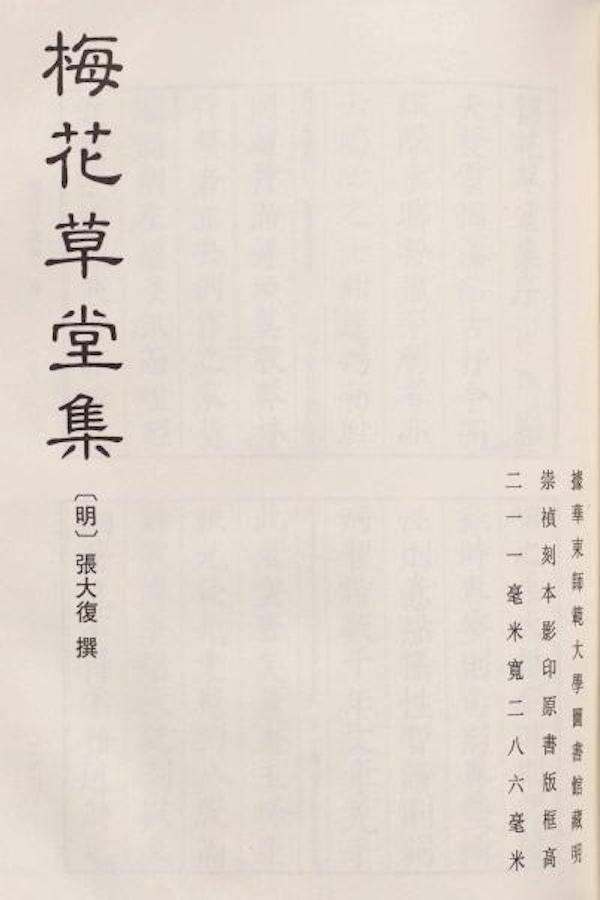 據華東師範大學圖書館藏明
崇禎刻本影印原書版框高
二一一毫米寬二八六毫米
梅花草堂集
〔明〕張大復 撰